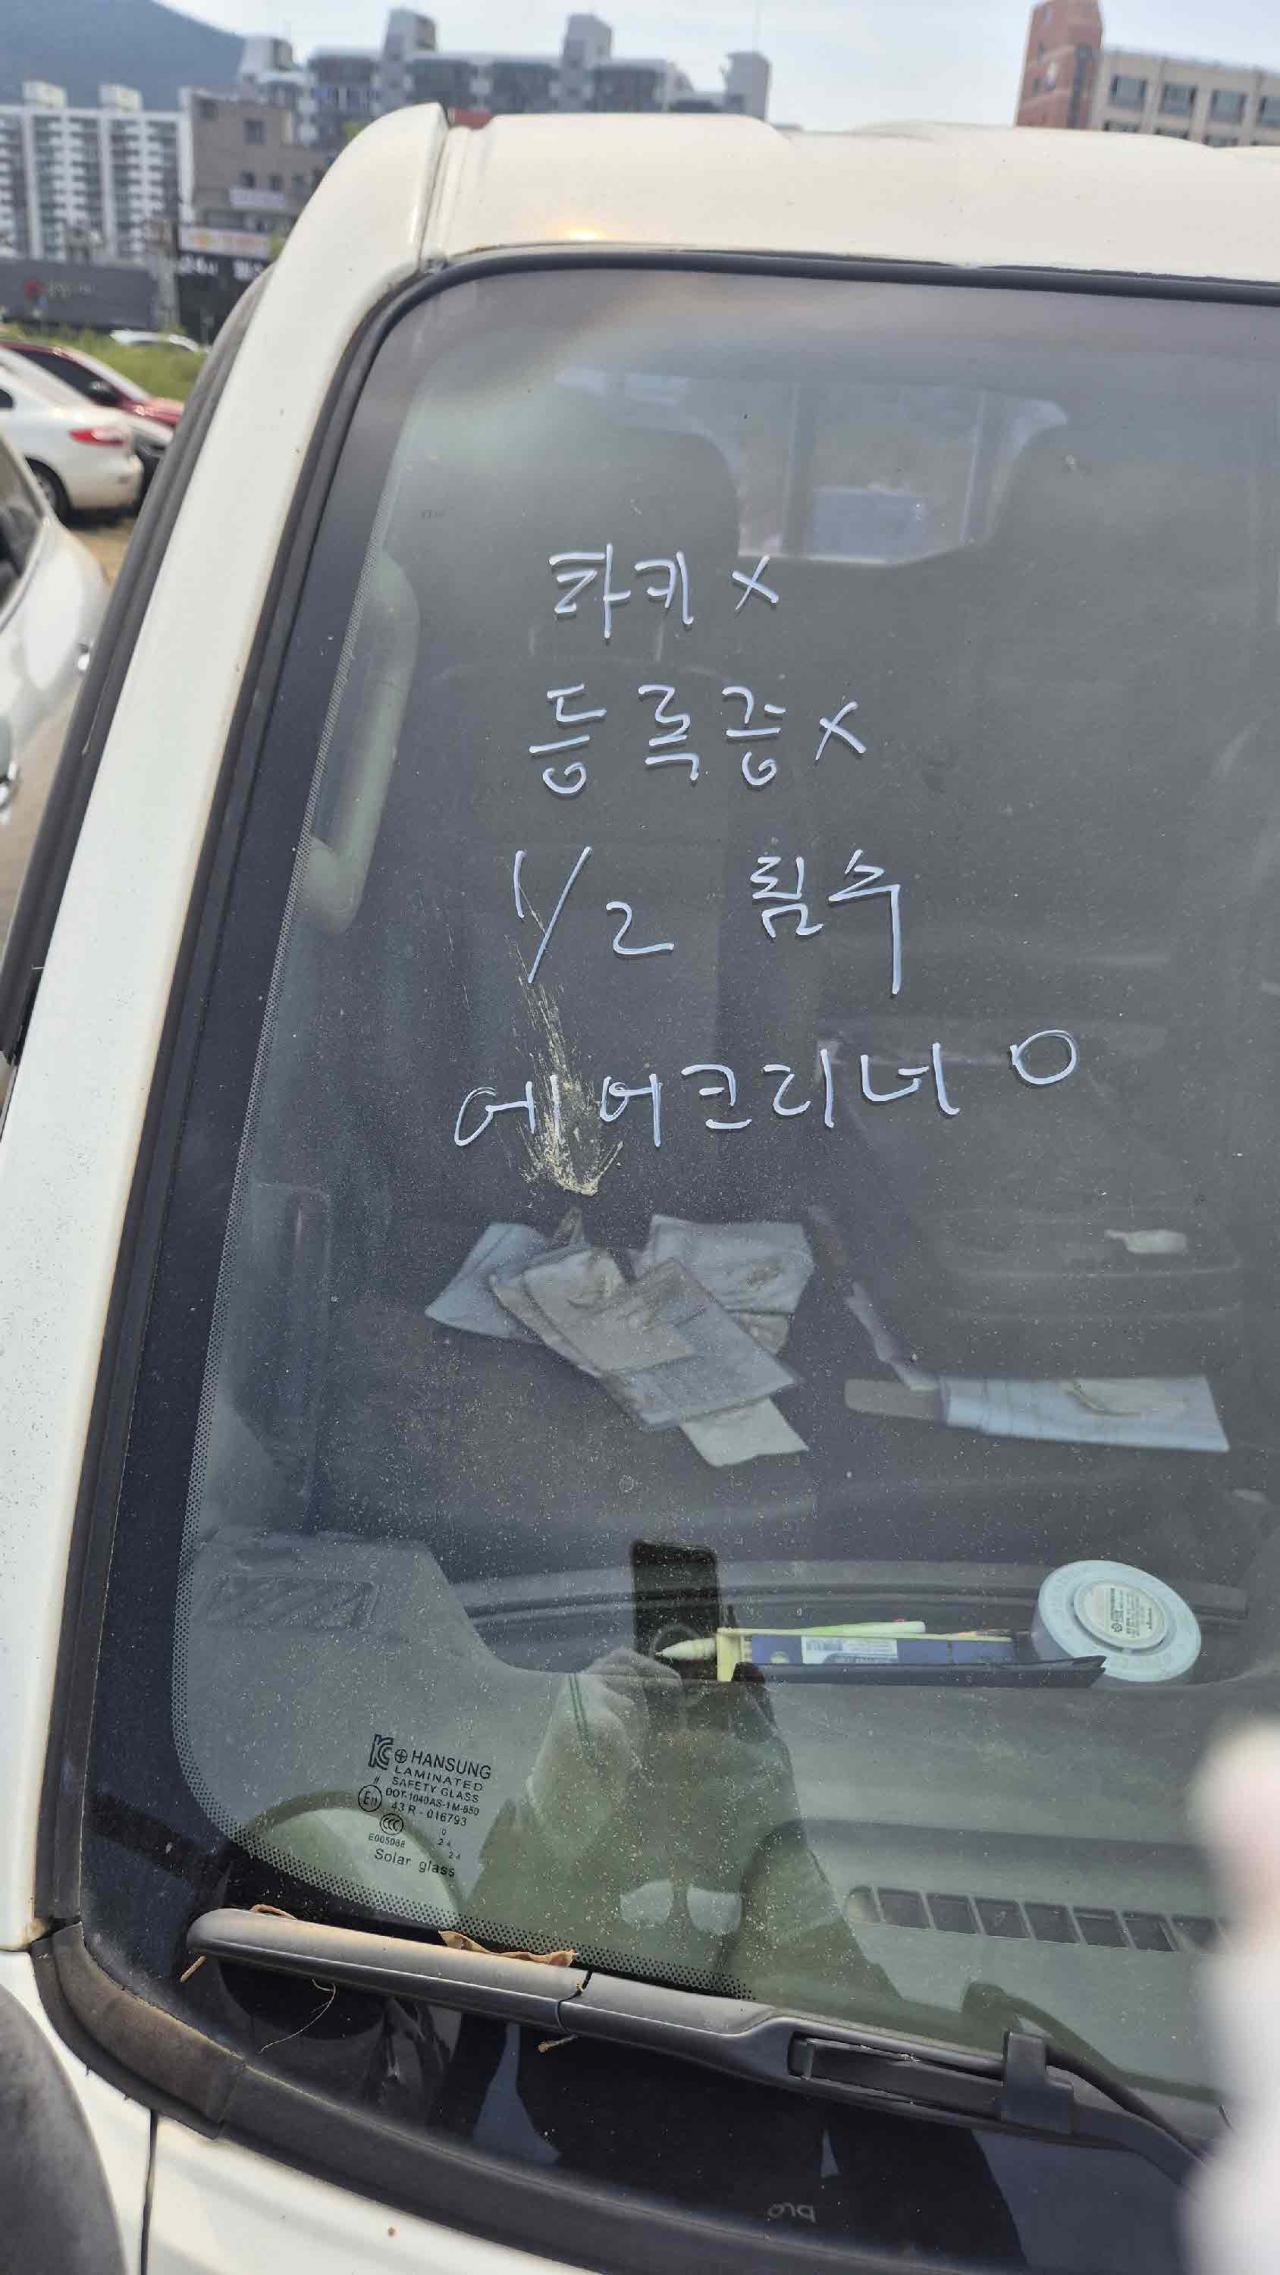 타키 X
등록증 X
1/2 침수
에어크리너 O
HANSUNG
LAMINATED
SAFETY GLASS
DOT-1040 AS-1 M-550
43 R - 016793
E005088
Solar glass